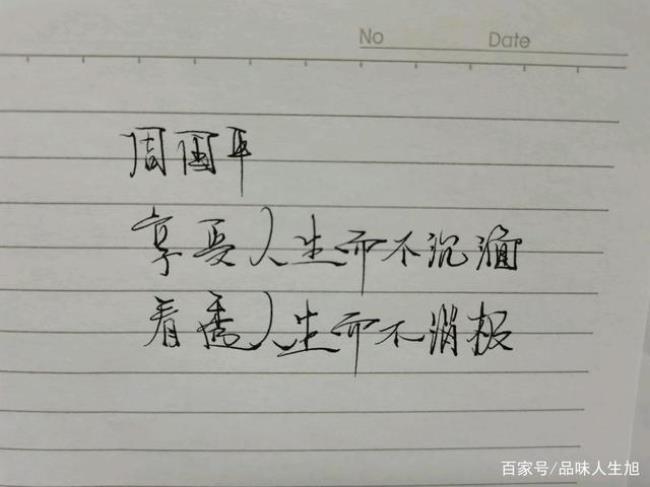 No Date
周国平
享受人生而不沉湎
看透人生而不消极
百家号/品味人生旭